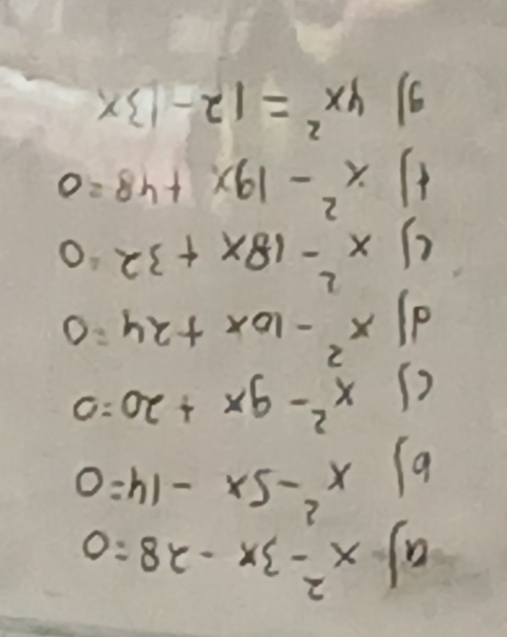 a) x² - 3x - 28 = 0
b) x² - 5x - 14 = 0
c) x² - 9x + 20 = 0
d) x² - 10x + 24 = 0
e) x² - 18x + 32 = 0
f) x² - 19x + 48 = 0
g) 4x² = 12 - 13x